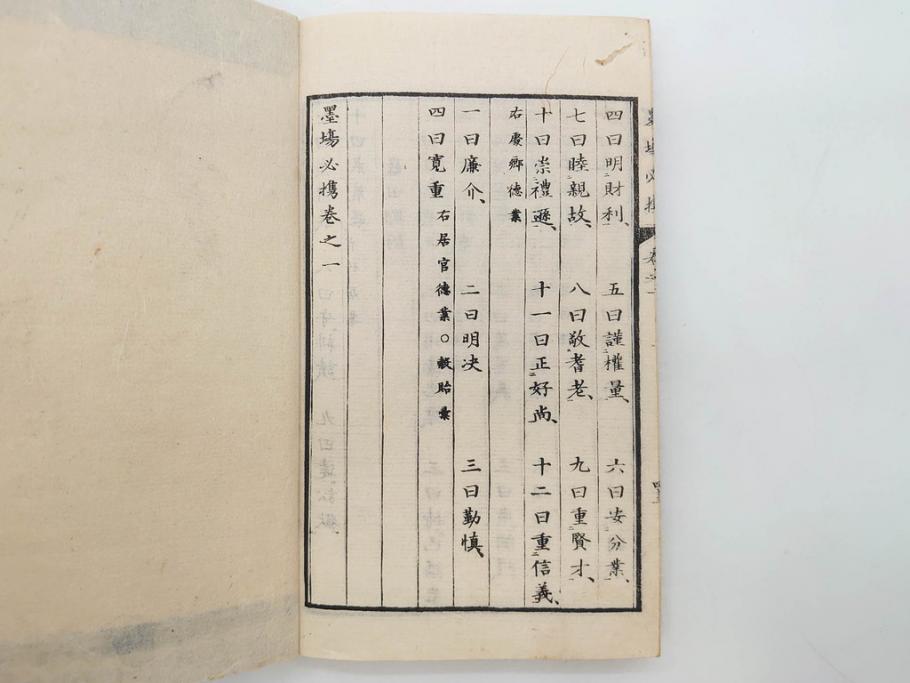 四曰明財利、五曰謹權量、六曰安分業、
七曰睦親故、八曰敬耆老、九曰重賢才、
十曰崇禮遜、十一曰正好尚、十二曰重信義、
右處鄉德業
一曰廉介、二曰明决三曰勤慎、
四曰寬重右居官德業○敕貽彙
墨場必携卷之一